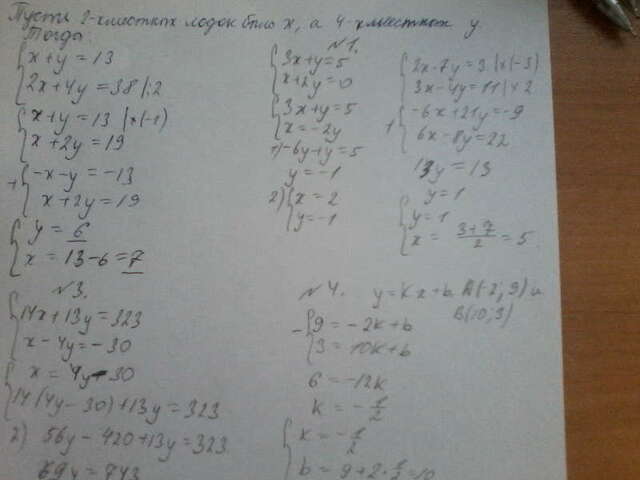 Пусть 2-хместных лодок было x, а 4-хместных y.
Тогда:
x+y=13
2x+4y=38 |:2
x+y=13 |×(-1)
x+2y=19
+ -x-y=-13
x+2y=19
y=6
x=13-6=7
№1.
3x+y=5
x+2y=0
3x+y=5
x=-2y
1) -6y+y=5
y=-1
2) x=2
y=-1
2x-7y=3 |×(-3)
3x-4y=11 |×2
-6x+21y=-9
6x-8y=22
13y=13
y=1
y=1
x= (3+7)/2 =5.
№3.
14x+13y=323
x-4y=-30
x=4y-30
14(4y-30)+13y=323
2) 56y-420+13y=323.
69y=743
№4. y=kx+b A(-2;9) и
B(10;3)
- 9=-2k+b
3=10k+b
6=-12k
k=-1/2
k=-1/2
b=9+2·1/2=10